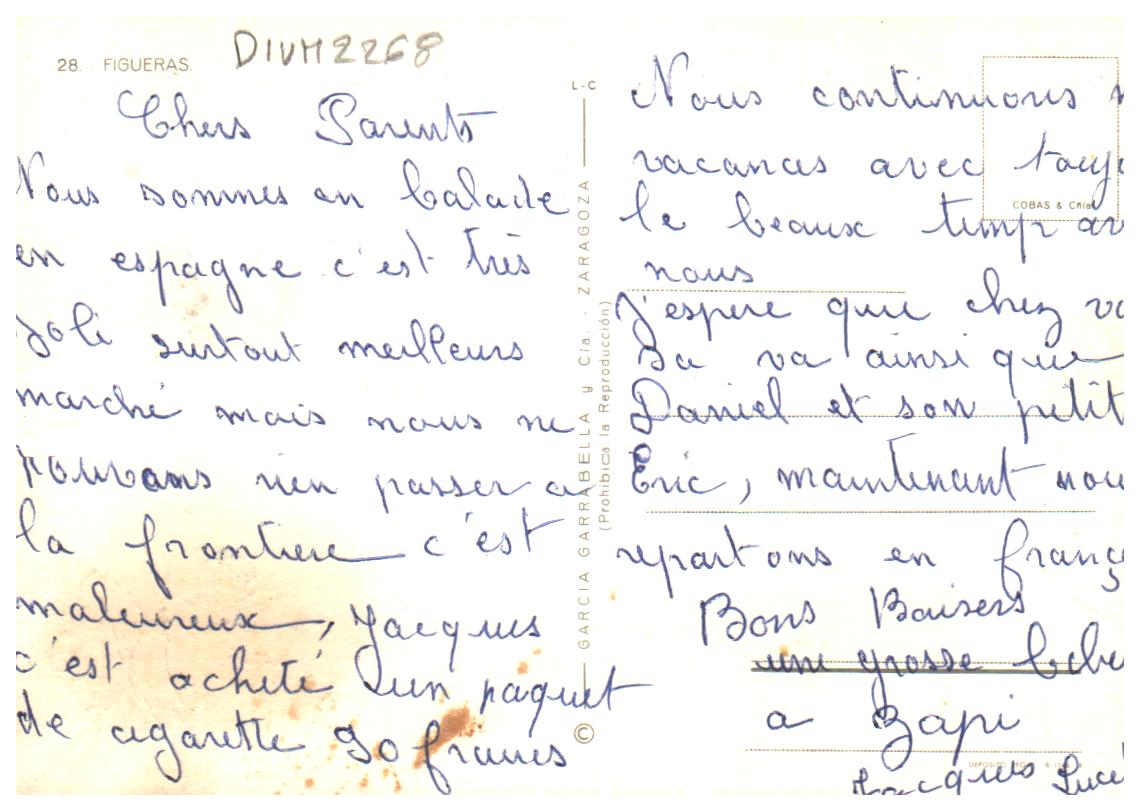 28. FIGUERAS.
DIVM2268
Chers Parents
Nous sommes en balade
en espagne c'est très
joli surtout meilleurs
marché mais nous ne
pouvons rien passer a
la frontiere c'est
maleureux, Jacques
c'est acheté un paquet
de cigarette 90 francs
L-C
GARCIA GARRABELLA y Cía. - ZARAGOZA
(Prohibida la Reproducción)
©
COBAS & Cnia
Nous continuons
vacances avec touj
le beaux temp av
nous
j'espere que chez vo
sa va ainsi que
Daniel et son petit
Eric, maintenant nou
repartons en franç
Bons Baisers
une grosse
a Zapi
DEPOSITO
Jacques Luce